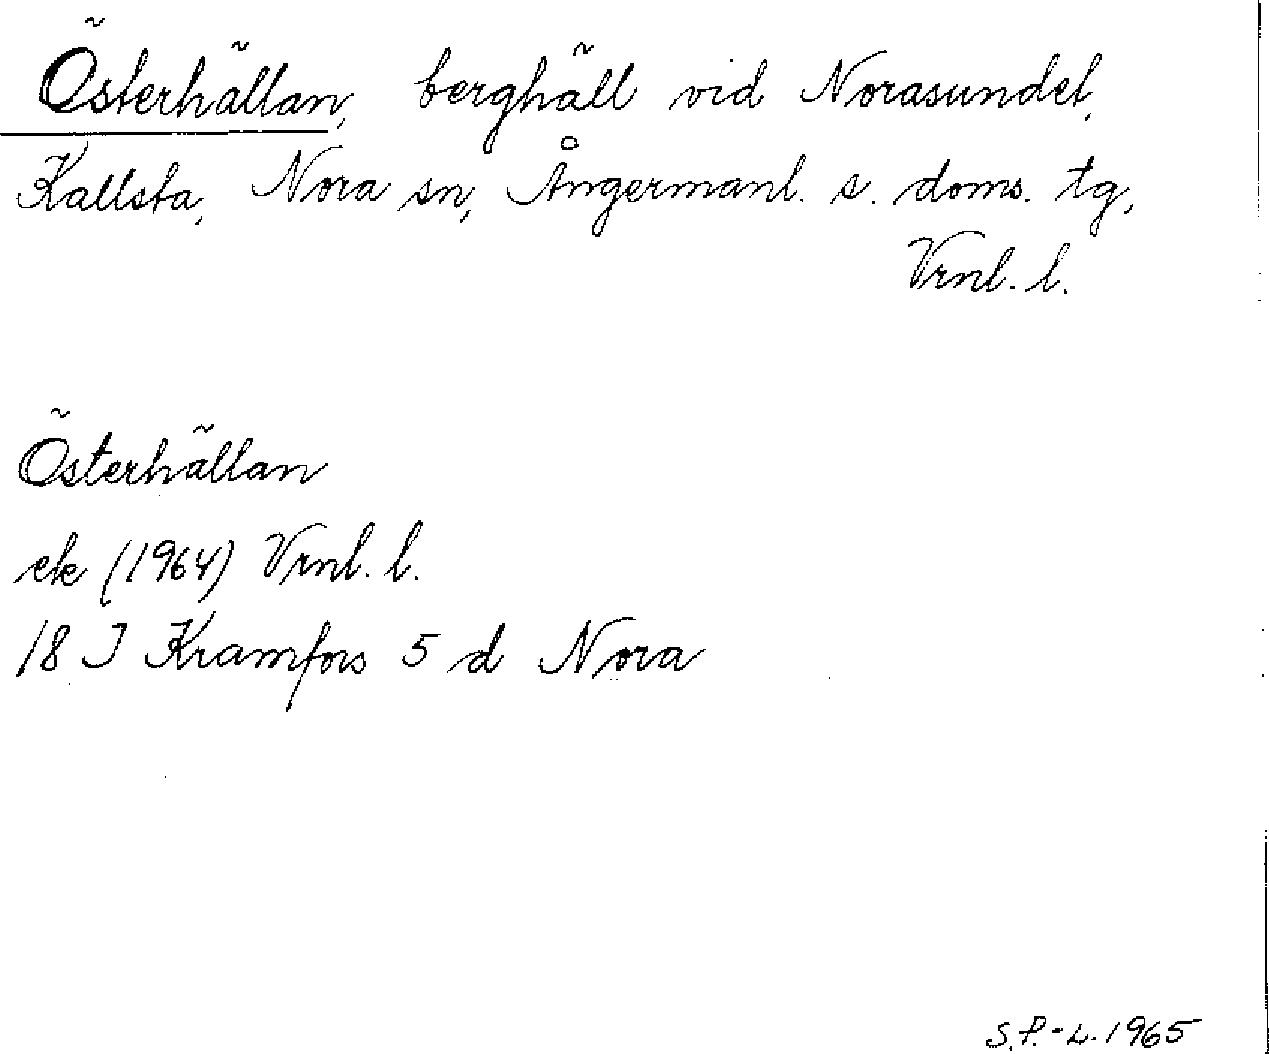 Österhällan, berghäll vid Norasundet,
Kallsta, Nora sn, Ångermanl. s. doms. tg,
Vrnl. l.
Österhällan
ek (1964) Vrnl. l.
18 J Kramfors 5 d Nora
S.P.-L. 1965